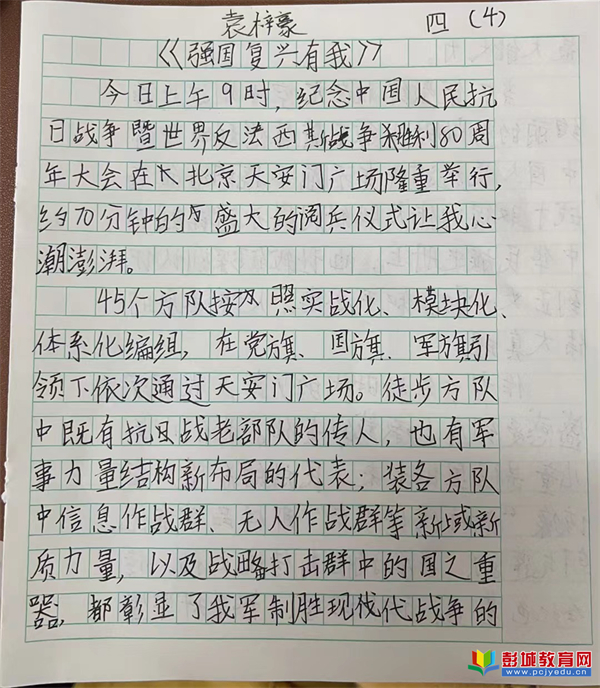 袁梓豪 四(4)
《强国复兴有我》
今日上午9时,纪念中国人民抗
日战争暨世界反法西斯战争胜利80周
年大会在北京天安门广场隆重举行,
约70分钟的盛大的阅兵仪式让我心
潮澎湃。
45个方队按照实战化、模块化、
体系化编组,在党旗、国旗、军旗引
领下依次通过天安门广场。徒步方队
中既有抗日战老部队的传人,也有军
事力量结构新布局的代表;装各方队
中信息作战群、无人作战群等新域新
质力量,以及战略打击群中的国之重
器,都彰显了我军制胜现代战争的
彭城教育网
www.pcjyedu.cn